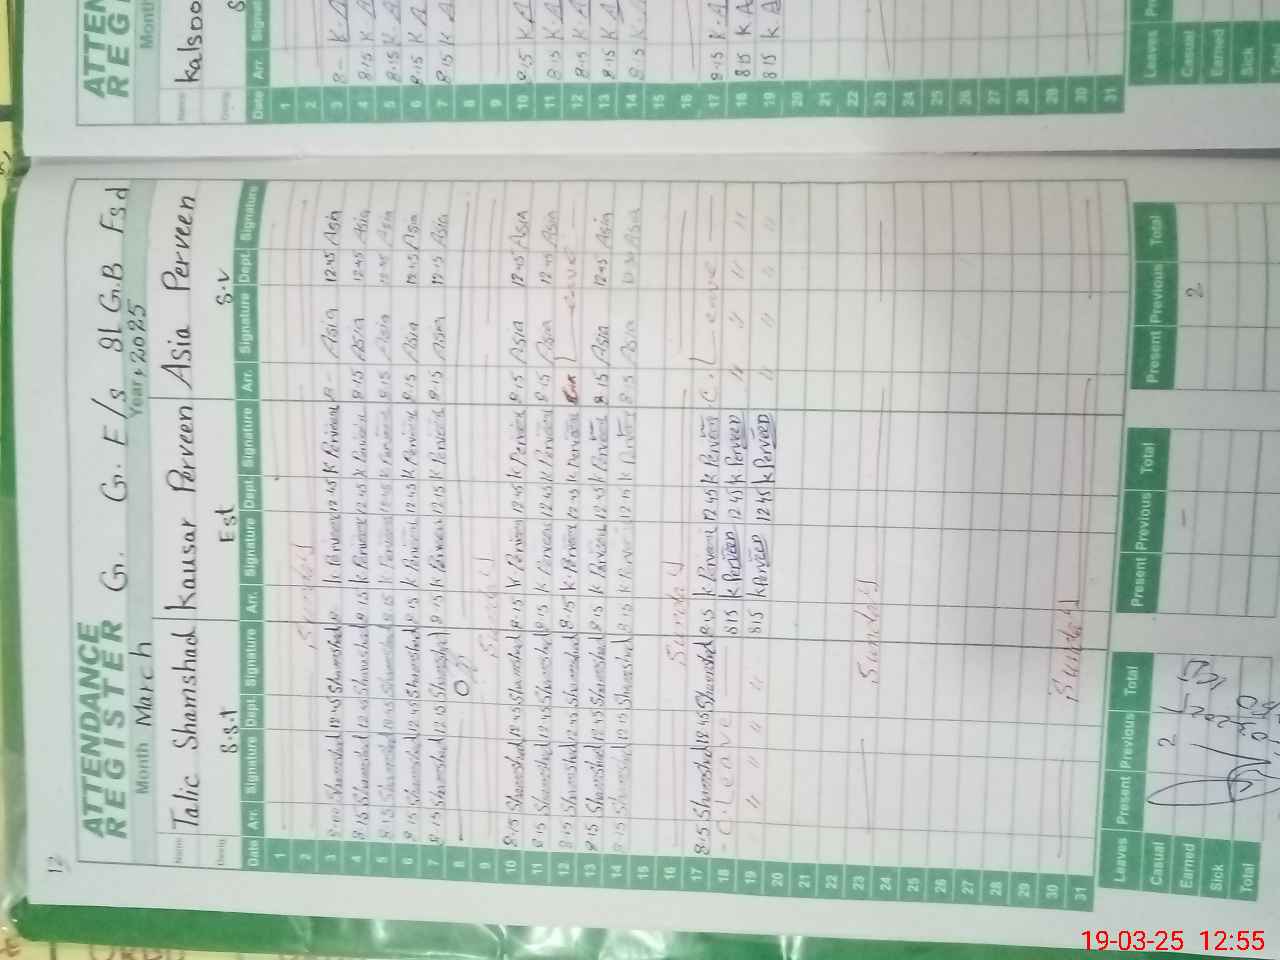 12
ATTENDANCE
REGISTER G. G. E/s 81 G.B Fsd
Month March Year, 2025
Name Talic Shamshad Kausar Perveen Asia Perveen
Desig S.S.T Est S.V
Date Arr. Signature Dept. Signature Arr. Signature Dept. Signature Arr. Signature Dept. Signature
1
2 Sunday
3 8-00 Shamshad 12.45 Shamshad K Perveen 12.45 K Perveen 8- Asia 12.45 Asia
4 8.15 Shamshad 12.45 Shamshad 8.15 K Perveen 12.45 K Perveen 8.15 Asia 12.45 Asia
5 8.15 Shamshad 12.45 Shamshad 8.15 K Perveen 12.45 K Perveen 8.15 Asia 12.45 Asia
6 8.15 Shamshad 12.45 Shamshad 8.15 K Perveen 12.45 K Perveen 8.15 Asia 12.45 Asia
7 8.15 Shamshad 12.15 Shamshad 8.15 K Perveen 12.15 K Perveen 8.15 Asia 12.15 Asia
8
9 Sunday
10 8.15 Shamshad 12.45 Shamshad 8.15 K Perveen 12.45 K Perveen 8.15 Asia 12.45 Asia
11 8.15 Shamshad 12.45 Shamshad 8.15 K Perveen 12.45 K Perveen 8.15 Asia 12.45 Asia
12 8.15 Shamshad 12.45 Shamshad 8.15 K Perveen 12.45 K Perveen Leave
13 8.15 Shamshad 12.45 Shamshad 8.15 K Perveen 12.45 K Perveen 8.15 Asia 12.45 Asia
14 8.15 Shamshad 12.15 Shamshad 8.15 K Perveen 12.15 K Perveen 8.15 Asia Asia
15
16 Sunday
17 8.15 Shamshad 12.45 Shamshad 8.15 K Perveen 12.45 K Perveen C. Leave
18 - C. Leave 815 K Perveen 1245 K Perveen " " " "
19 " " " " 815 K Perveen 1245 K Perveen " " " "
20
21
22
23 Sunday
24
25
26
27
28
29
30 Sunday
31
Leaves Present Previous Total Present Previous Total Present Previous Total
Casual 2
Earned - 2
Sick
Total
ATTEN
REGIS
Month
Name Kalsoo
Desig S
Date Arr. Signat
1
2
3 8- K A
4 8.15 K A
5 8.15 K A
6 8.15 K A
7 8.15 K A
8
9
10 8.15 K A
11 8.15 K A
12 8.15 K A
13 8.15 K A
14 8.15 K A
15
16
17 8.15 K.A
18 8.15 K A
19 8.15 K A
20
21
22
23
24
25
26
27
28
29
30
31
Leaves Pr
Casual
Earned
Sick
19-03-25 12:55